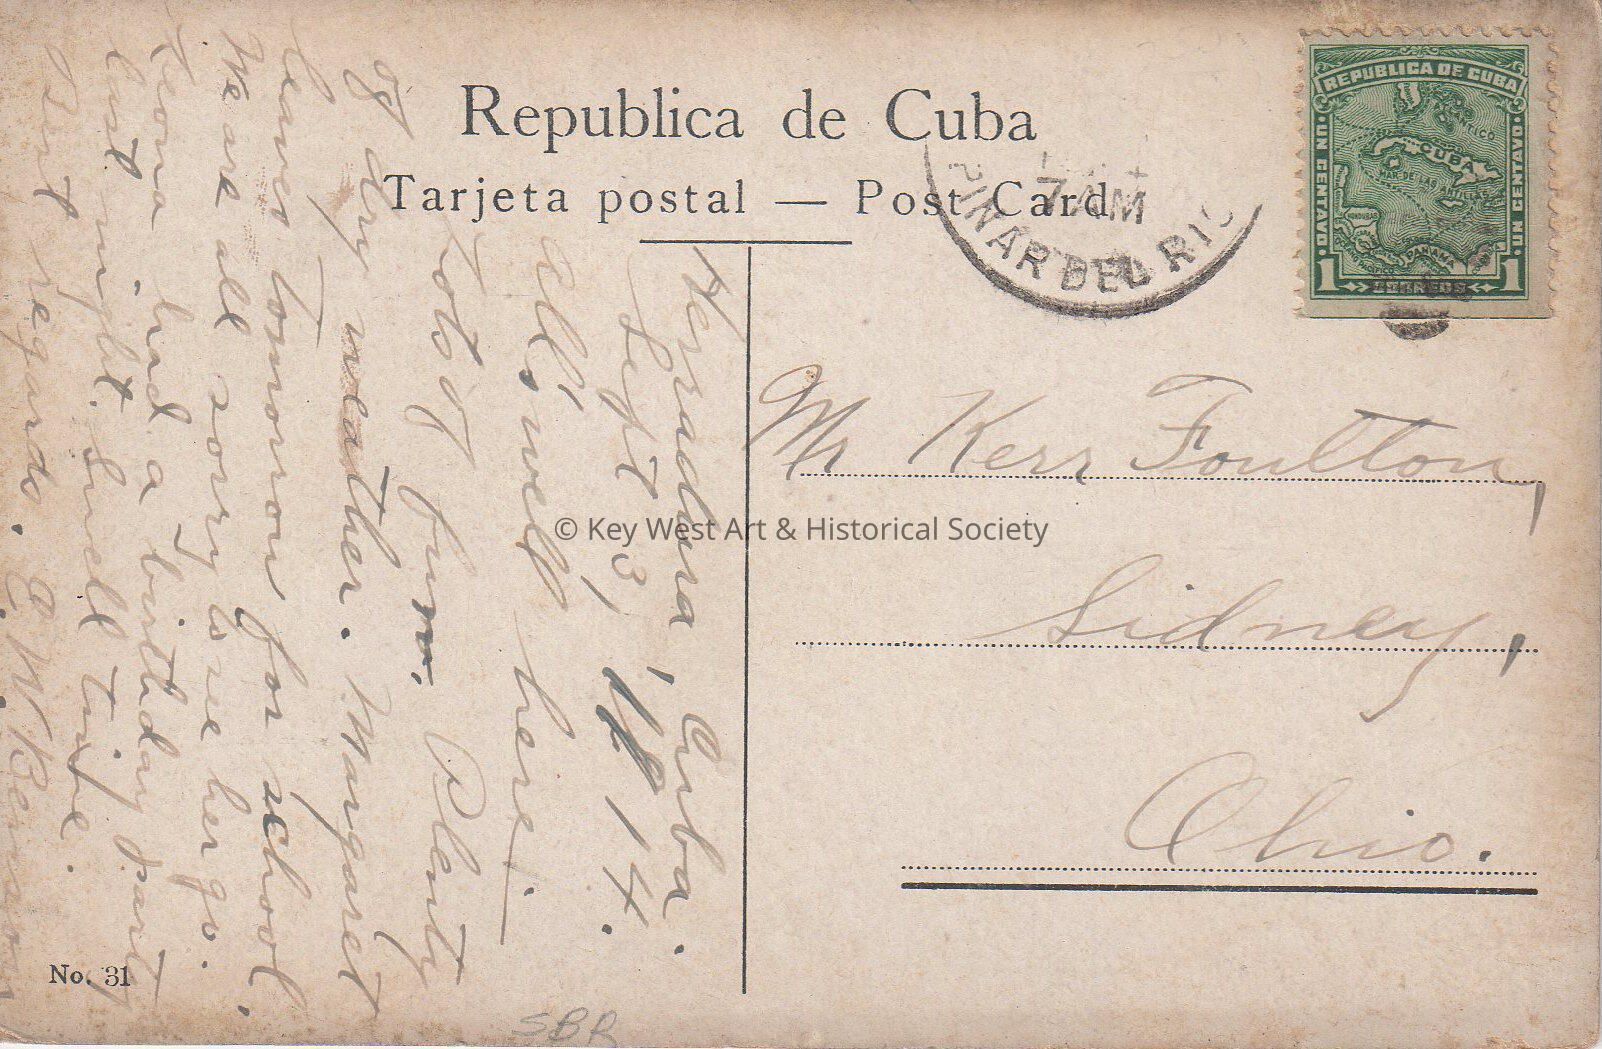 Republica de Cuba
Tarjeta postal — Post Card
7 AM
PINAR DEL RIO
REPUBLICA DE CUBA
UN CENTAVO
UN CENTAVO
CUBA
MAR DE LAS ANTILLAS
HONDURAS
PANAMA
1 CORREOS 1
Herradura, Cuba.
Sept 3, '14.
All's well here.
Lots of fun. Plenty
of dry weather. Margaret
leaves tomorrow for school.
We are all sorry to see her go.
Leona had a birthday party
last night. Swell time.
Best regards.
Mr Kerr Foulton,
Sidney,
Ohio.
© Key West Art & Historical Society
No. 31
SBR